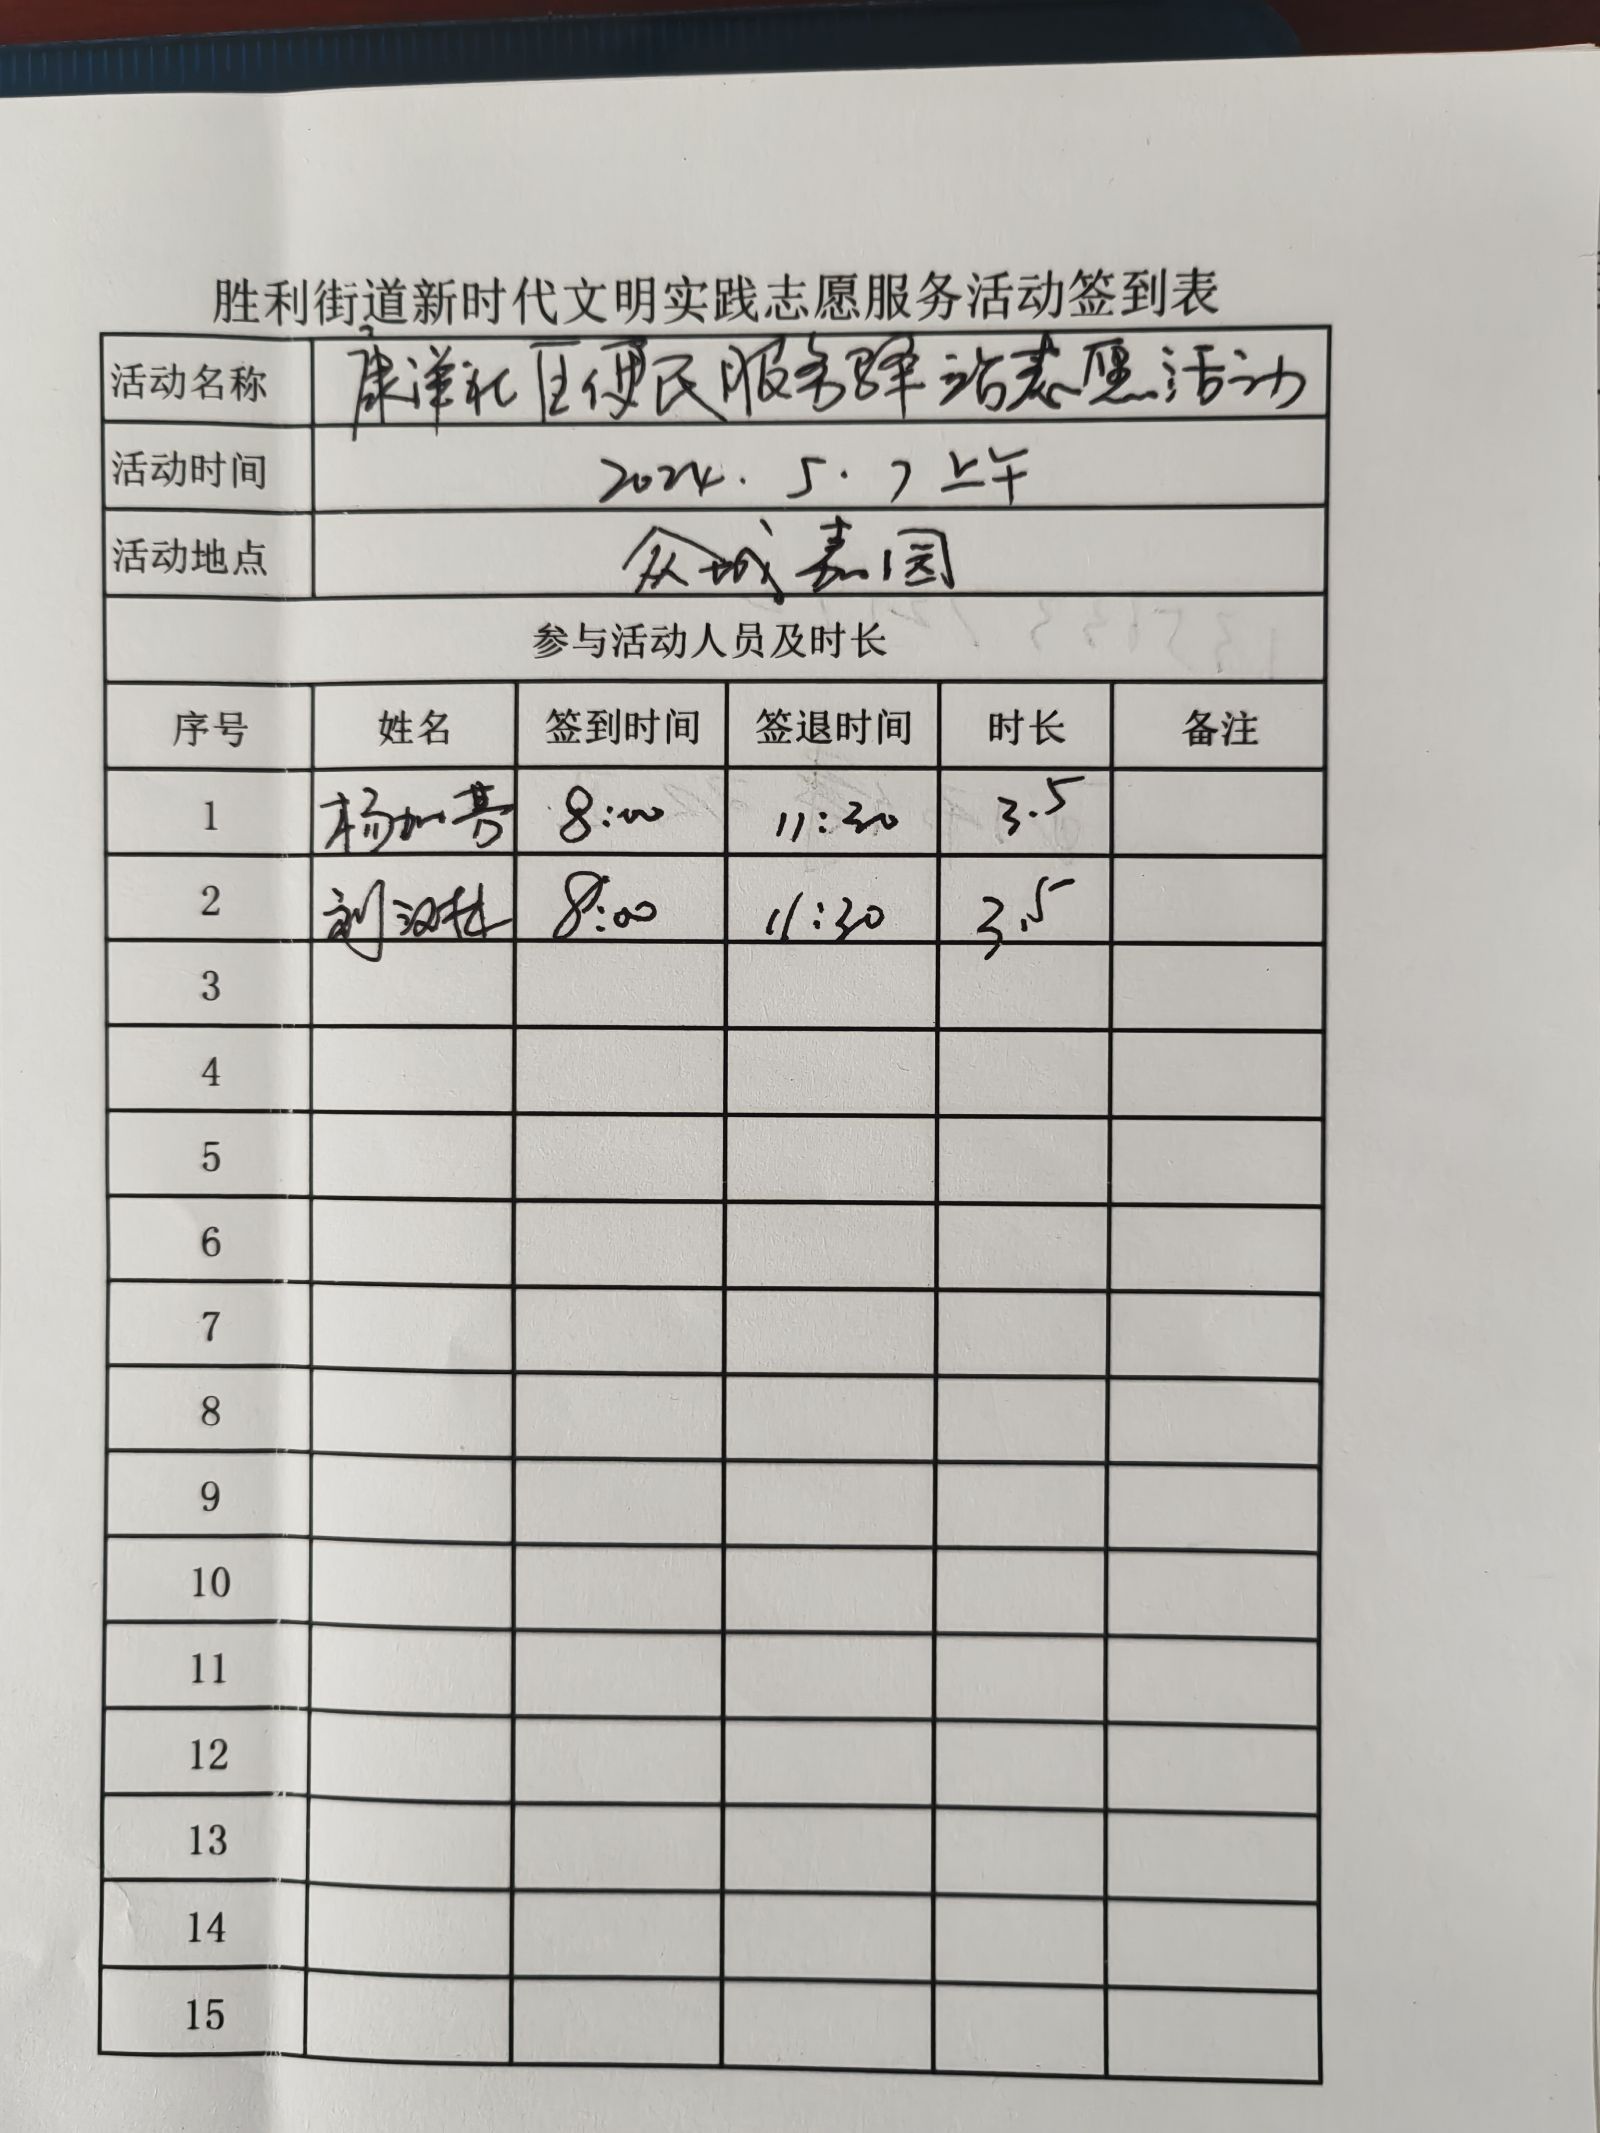 胜利街道新时代文明实践志愿服务活动签到表
活动名称 康洋社区便民服务驿站志愿活动
活动时间 2024.5.7上午
活动地点 众城嘉园
参与活动人员及时长
序号 姓名 签到时间 签退时间 时长 备注
1 杨加 8:00 11:30 3.5
2 刘汉 8:00 11:30 3.5
3
4
5
6
7
8
9
10
11
12
13
14
15